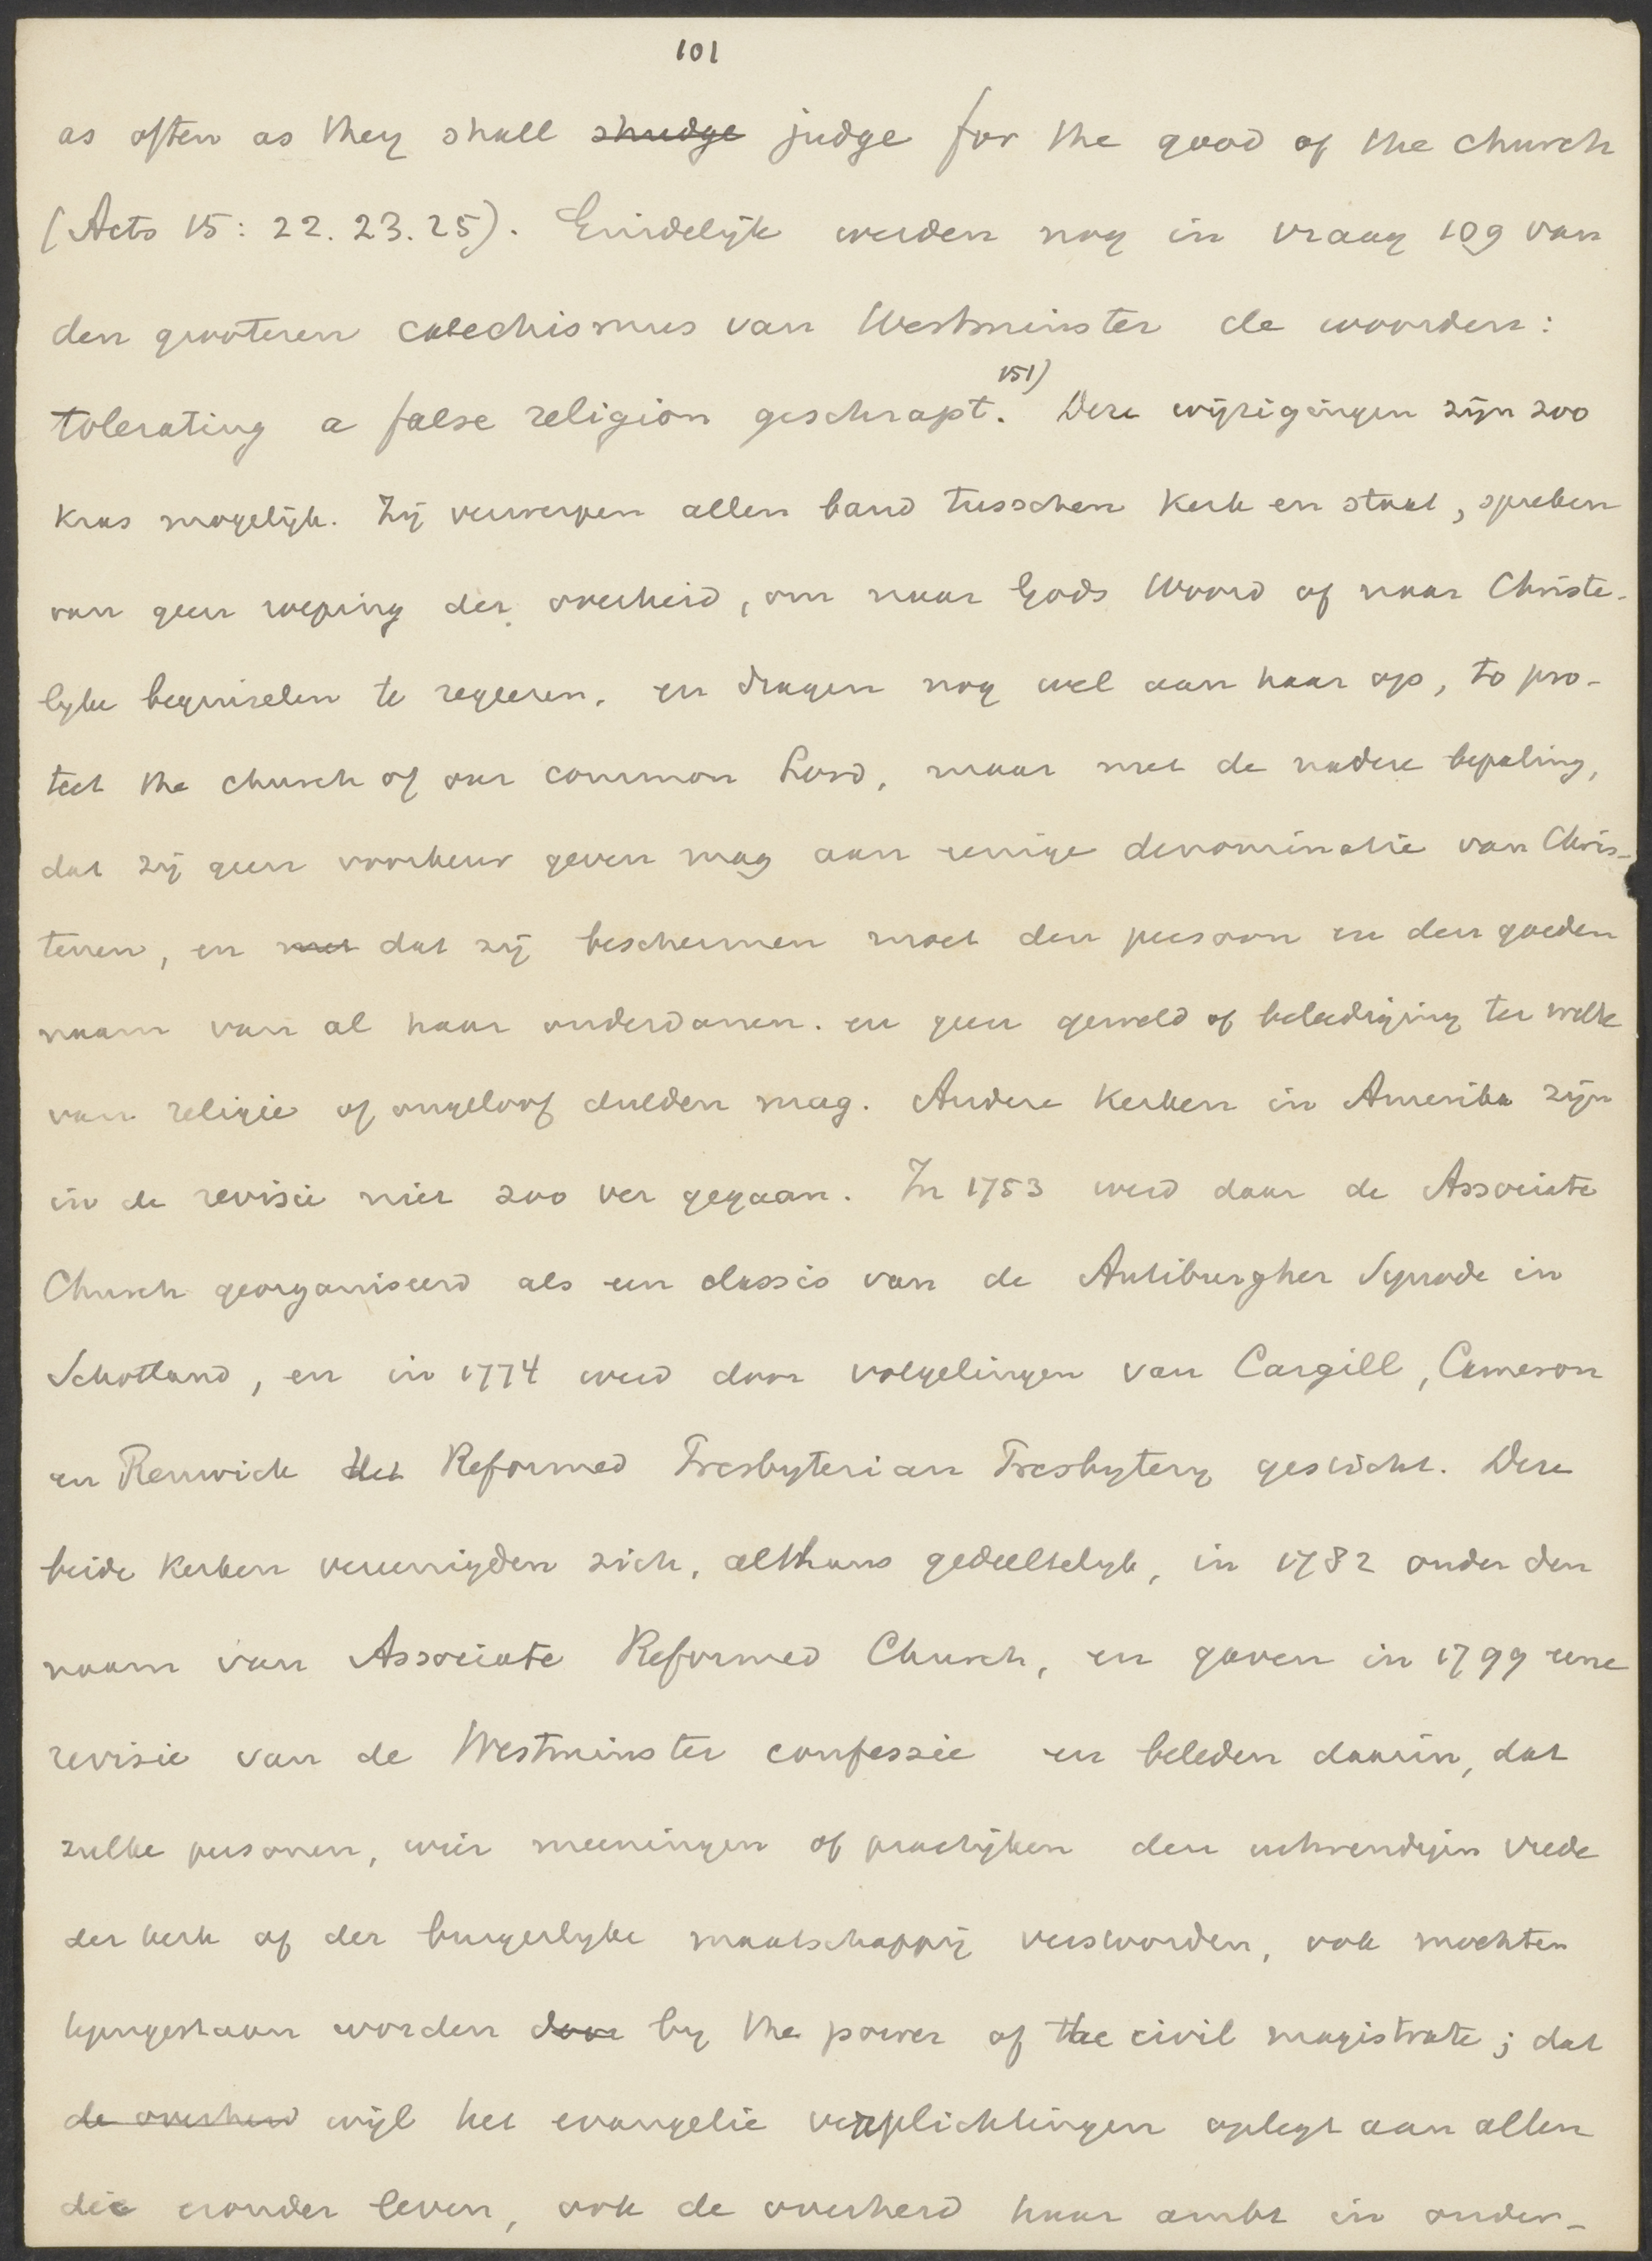 101
as often as they shall shudge judge for the good of the church
(Acts 15: 22. 23. 25). Eindelijk werden nog in vraag 109 van
den grooteren catechismus van Westminster de woorden:
tolerating a false religion geschrapt. 151) Deze wijzigingen zijn zoo
kras mogelijk. Zij verwerpen allen band tusschen kerk en staat, spreken
van geen roeping der overheid, om naar Gods Woord of naar Christe-
lijke beginselen te regeeren, en dragen nog wel aan haar op, to pro-
tect the church of our common Lord, maar met de nadere bepaling,
dat zij geen voorkeur geven mag aan eenige denominatie van Chris-
tenen, en met dat zij beschermen moet den persoon en den goeden
naam van al haar onderdanen. en geen geweld of beleediging ter wille
van religie of ongeloof dulden mag. Andere kerken in Amerika zijn
in de revisie niet zoo ver gegaan. In 1753 werd daar de Associate
Church georganiseerd als een classis van de Antiburgher Synode in
Schotland, en in 1774 werd door volgelingen van Cargill, Cameron
en Renwick het Reformed Presbyterian Presbytery gesticht. Deze
beide kerken vereenigden zich, althans gedeeltelijk, in 1782 onder den
naam van Associate Reformed Church, en gaven in 1799 eene
revisie van de Westminster confessie en beleden daarin, dat
zulke personen, wier meeningen of practijken den uitwendigen vrede
der kerk of der burgerlijke maatschappij verstoorden, ook mochten
tegengestaan worden door by the power of the civil magistrate; dat
de overheid wijl het evangelie verplichtingen oplegt aan allen
die eronder leven, ook de overheid haar ambt in onder-